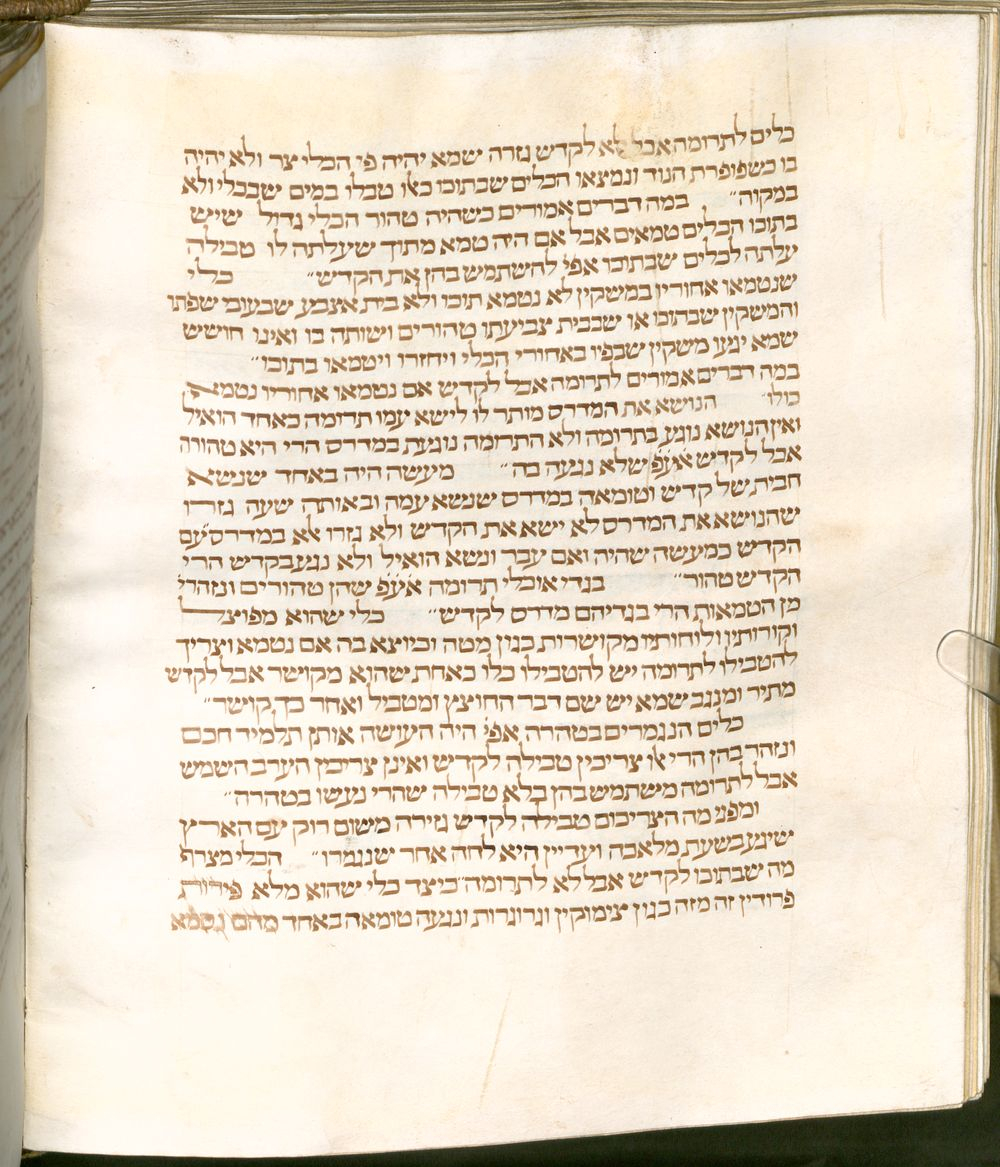 כלים לתרומה אבל לא לקדש גזרה שמא יהיה פי הכלי צר ולא יהיה
בו כשפופרת הנוד ונמצאו הכלים שבתוכו כאלו טבלו במים שבכלי ולא
במקוה״ במה דברים אמורים כשהיה טהור הכלי גדול שיש
בתוכו הכלים טמאים אבל אם היה טמא מתוך שעלתה לו טבילה
עלתה לכלים שבתוכו אפי׳ להשתמש בהן את הקדש״ כלי
שנטמאו אחוריו במשקין לא נטמא תוכו ולא בית אצבע שבעובי שפתו
והמשקין שבתוכו או שבבית צביעתו טהורים ושותה בו ואינו חושש
שמא יגעו משקין שבפיו באחורי הכלי ויחזרו ויטמאו בתוכו״
במה דברים אמורים לתרומה אבל לקדש אם נטמאו אחוריו נטמא
כולו״ הנושא את המדרס מותר לו לישא עמו תרומה כאחד הואיל
ואין הנושא נוגע בתרומה ולא התרומה נוגעת במדרס הרי היא טהורה
אבל לקדש אעפ שלא נגעה בה״ מעשה היה באחד שנשא
חבית של קדש וטומאה במדרס שנשא עמה ובאותה שעה גזרו
שהנושא את המדרס לא ישא את הקדש ולא גזרו אלא במדרס עם
הקדש כמעשה שהיה ואם עבר ונשא הואיל ולא נגע בקדש הרי
הקדש טהור״ בגדי אוכלי תרומה אעפ שהן טהורים ונזהרי
מן הטמאות הרי בגדיהם מדרס לקדש״ כלי שהוא מפוצל
וקורותיו ולוחותיו מקושרות כגון מטה וכיוצא בה אם נטמא וצריך
להטבילו לתרומה יש להטבילו כלו כאחת שהוא מקושר אבל לקדש
מתיר ומנגב שמא יש שם דבר החוצץ ומטביל ואחר כך קושר״
כלים הנגמרים בטהרה אפי׳ היה העושה אותן תלמיד חכם
ונזהר בהן הרי אלו צריכין טבילה לקדש ואינן צריכין הערב השמש
אבל לתרומה משתמש בהן בלא טבילה שהרי נעשו בטהרה״
ומפני מה הצריכום טבילה לקדש גזירה משום רוק עם הארץ
שיגע בשעת מלאכה ועדיין היא לחה אחר שנגמרו״ הכלי מצרף
מה שבתוכו לקדש אבל לא לתרומה״ כיצד כלי שהוא מלא פירות
פרודין זה מזה כגון צימוקין וגרוגרות ונגעה טומאה באחד מהם נטמא